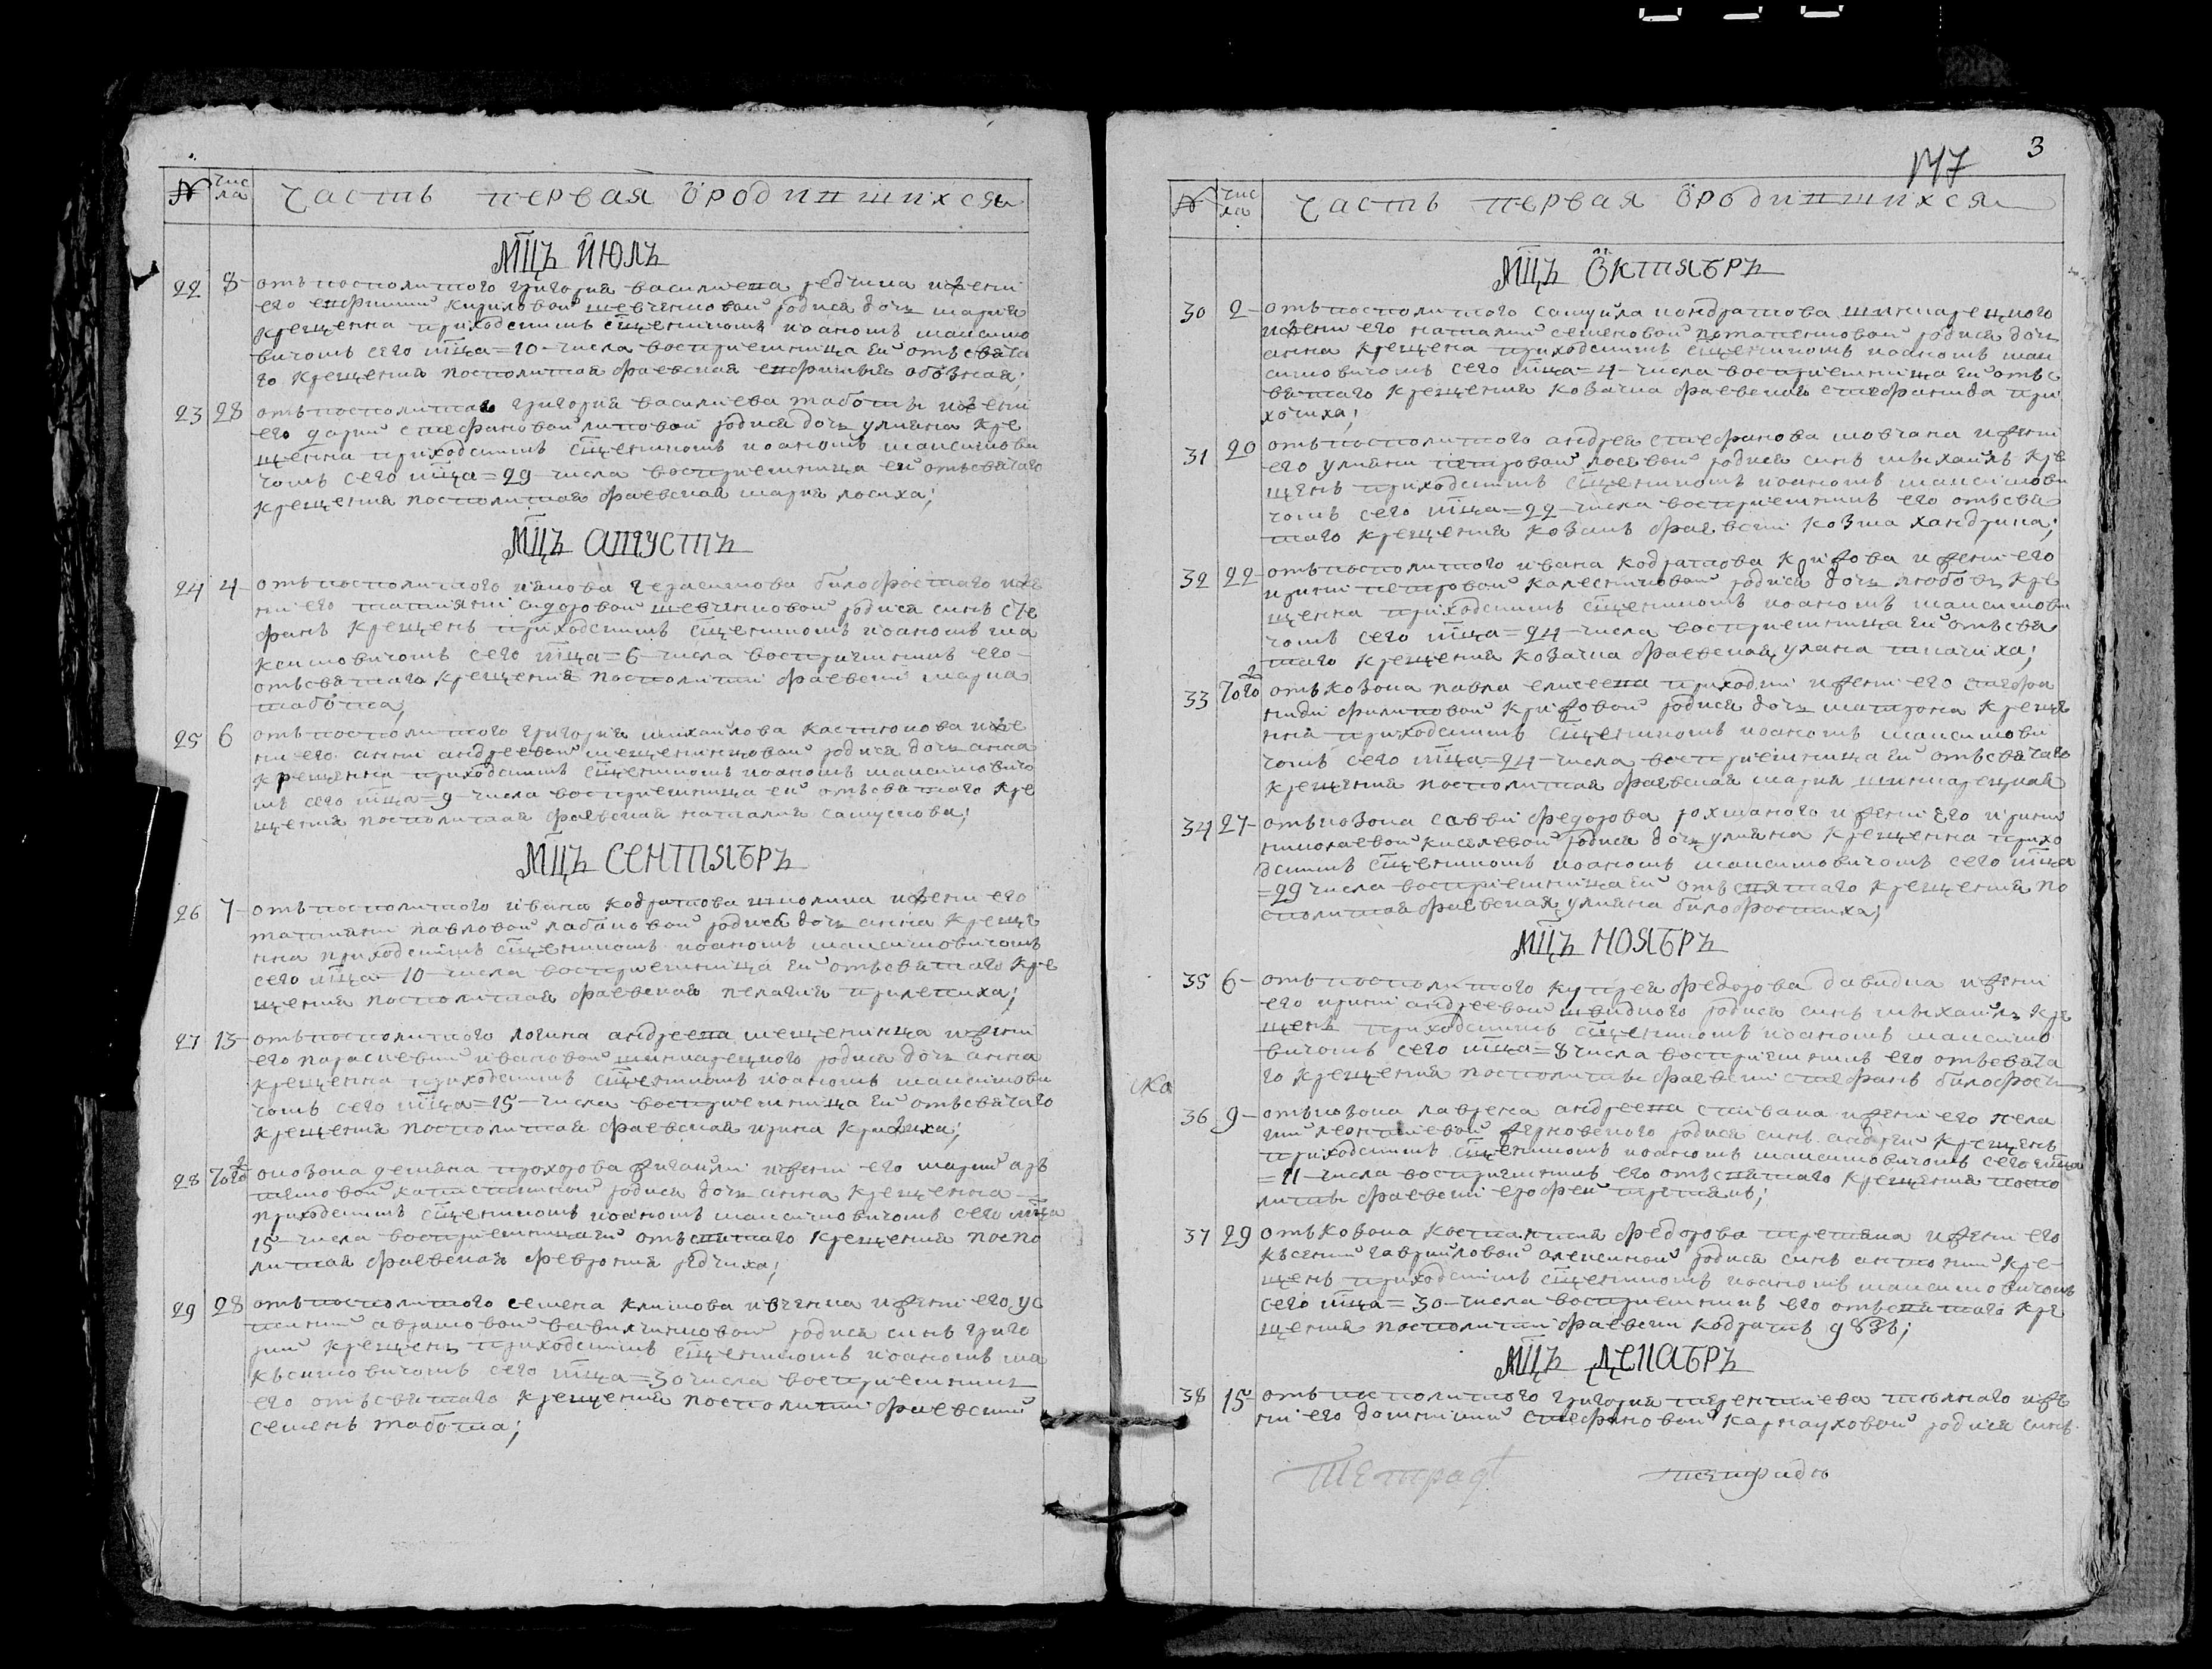 № чис
ла
Часть первая ѽ родившихся
МЦЪ ИЮЛЬ
22 8 отъ посполитого григория василиева редчица и жени
его ефимии кириловой шевченковой родися дочь мария
крещенна приходскимъ сщенникомъ иоаномъ максимо
вичомъ сего мца = 10 числа восприемница ей отъ свята
го крещения посполитая фаевская ефимия обозная;
23 28 отъ посполитаго григория василиева таботы и жени
его дарии стефановой липовой родися дочь улияна кре
щенна приходскимъ сщенникомъ иоаномъ максимови
чомъ сего мца = 29 числа восприемница ей отъ святаго
крещения посполитая фаевская мария лосиха;
МЦЪ АВГУСТЪ
24 4 отъ посполитого иякова герасимова билофостаго и же
ни его татияни сидоровой шевченковой родися синъ сте
фанъ крещенъ приходскимъ сщенникомъ иоаномъ ма
ксимовичомъ сего мца = 6 числа восприемникъ его
отъ святаго крещения посполитий фаевский марка
табота;
25 6 отъ посполитого григория михайлова кастюкова и же
ни его анни андреевой мещенинцовой родися дочь анна
крещенна приходскимъ сщенникомъ иоаномъ максимовичо
мъ сего мца = 9 числа восприемница ей отъ святаго кре
щения посполитая фаевская наталия самускова;
МЦЪ СЕНТЯБРЪ
26 7 отъ посполитого ивана кодратова школика и жени его
татияни павловой лабановой родися дочь анна креще
нна приходскимъ сщенникомъ иоаномъ максимовичомъ
сего мца 10 числа восприемница ей отъ святаго кре
щения посполитая фаевская пелагия прилепиха;
27 13 отъ посполитого логина андреева мещенинца и жени
его параскевии ивановой шинкарецкого родися дочь анна
крещенна приходскимъ сщенникомъ иоаномъ максимови
чомъ сего мца = 15 числа восприемница ей отъ святаго
крещения посполитая фаевская ирина кривиха;
28 того о козака демяна прохорова жигайли и жени его марии ар
темовой родися дочь анна крещенна
приходскимъ сщенникомъ иоаномъ максимовичомъ сего мца
15 числа восприемница ей отъ святаго крещения поспо
литая фаевская феврония редчиха;
29 28 отъ посполитого семена климова ивченка и жени его ус
тинии аврамовой родися синъ григо
рий крещенъ приходскимъ сщенникомъ иоаномъ ма
късимовичомъ сего мца = 30 числа восприемникъ
его отъ святаго крещения посполитий фаевский
семенъ табота;
147
3
№ чис
ла
Часть первая ѽ родившихся
МЦЪ ѼКТЯБРЪ
30 2 отъ посполитого самуйла кондратова шинкарецкого
и жени его наталии семеновой потапенковой родися дочь
анна крещена приходскимъ сщенникомъ иоаномъ мак
симовичомъ сего мца = 4 числа восприемница ей отъ с
вятаго крещения козачка фаевская стефанида при
хочиха;
31 20 отъ посполитого андрея стефанова мовчана и жени
его улияни петровой лосевой родися синъ михаилъ кре
щенъ приходскимъ сщенникомъ иоаномъ максимови
чомъ сего мца = 22 числа восприемникъ его отъ свя
таго крещения козакъ фаевский козма хандрика;
32 22 отъ посполитого ивана кодратова кривова и жени его
ирини петровой калесниковой родися дочь любовъ кре
щенна приходскимъ сщенникомъ иоаномъ максимови
чомъ сего мца = 24 числа восприемница ей отъ свя
таго крещения козачка фаевская улана ткачиха;
33 того отъ козака павла елисеева приходки и жени его стефа
ниди филиповой кривовой родися дочь матрона креще
нна приходскимъ сщенникомъ иоаномъ максимови
чомъ сего мца = 24 числа восприемница ей отъ святаго
крещения посполитая фаевская мария шинкарецкая
34 27 отъ козака савви федорова рохманого и жени его ирини
николаевой киселевой родися дочь улияна крещенна прихо
дскимъ сщенникомъ иоаномъ максимовичомъ сего мца
= 29 числа восприемница ей отъ святаго крещения по
сполитая фаевская улияна билофостиха;
МЦЪ НОЯБРЪ
35 6 отъ посполитого куприя федорова давидка и жени
его ирини андреевой швидкого родися синъ михаилъ кре
щенъ приходскимъ сщенникомъ иоаномъ максимо
вичомъ сего мца = 8 числа восприемникъ его отъ свята
го крещения посполитый фаевский стефанъ билофост
36 9 отъ козака лаврена андреева спивака и жени его пела
гии леонтиевой жерновского родися синъ андрей крещенъ
приходскимъ сщенникомъ иоаномъ максимовичомъ сего мца
= 11 числа восприемникъ его отъ святаго крещения поспо
литый фаевский ерофей притякъ;
37 29 отъ козака костантия федорова притяка и жени его
късении гавриловой алексиной родися синъ антоний кре
щенъ приходскимъ сщенникомъ иоаномъ максимовичомъ
сего мца = 30 числа восприемникъ его отъ святаго кре
щения посполитий фаевский кодратъ
МЦЪ ДЕКАБРЪ
38 15 отъ посполитого григория терентиева и же
ни его домникии стефановой карнауховой родися синъ
тетрадь
тетрадь